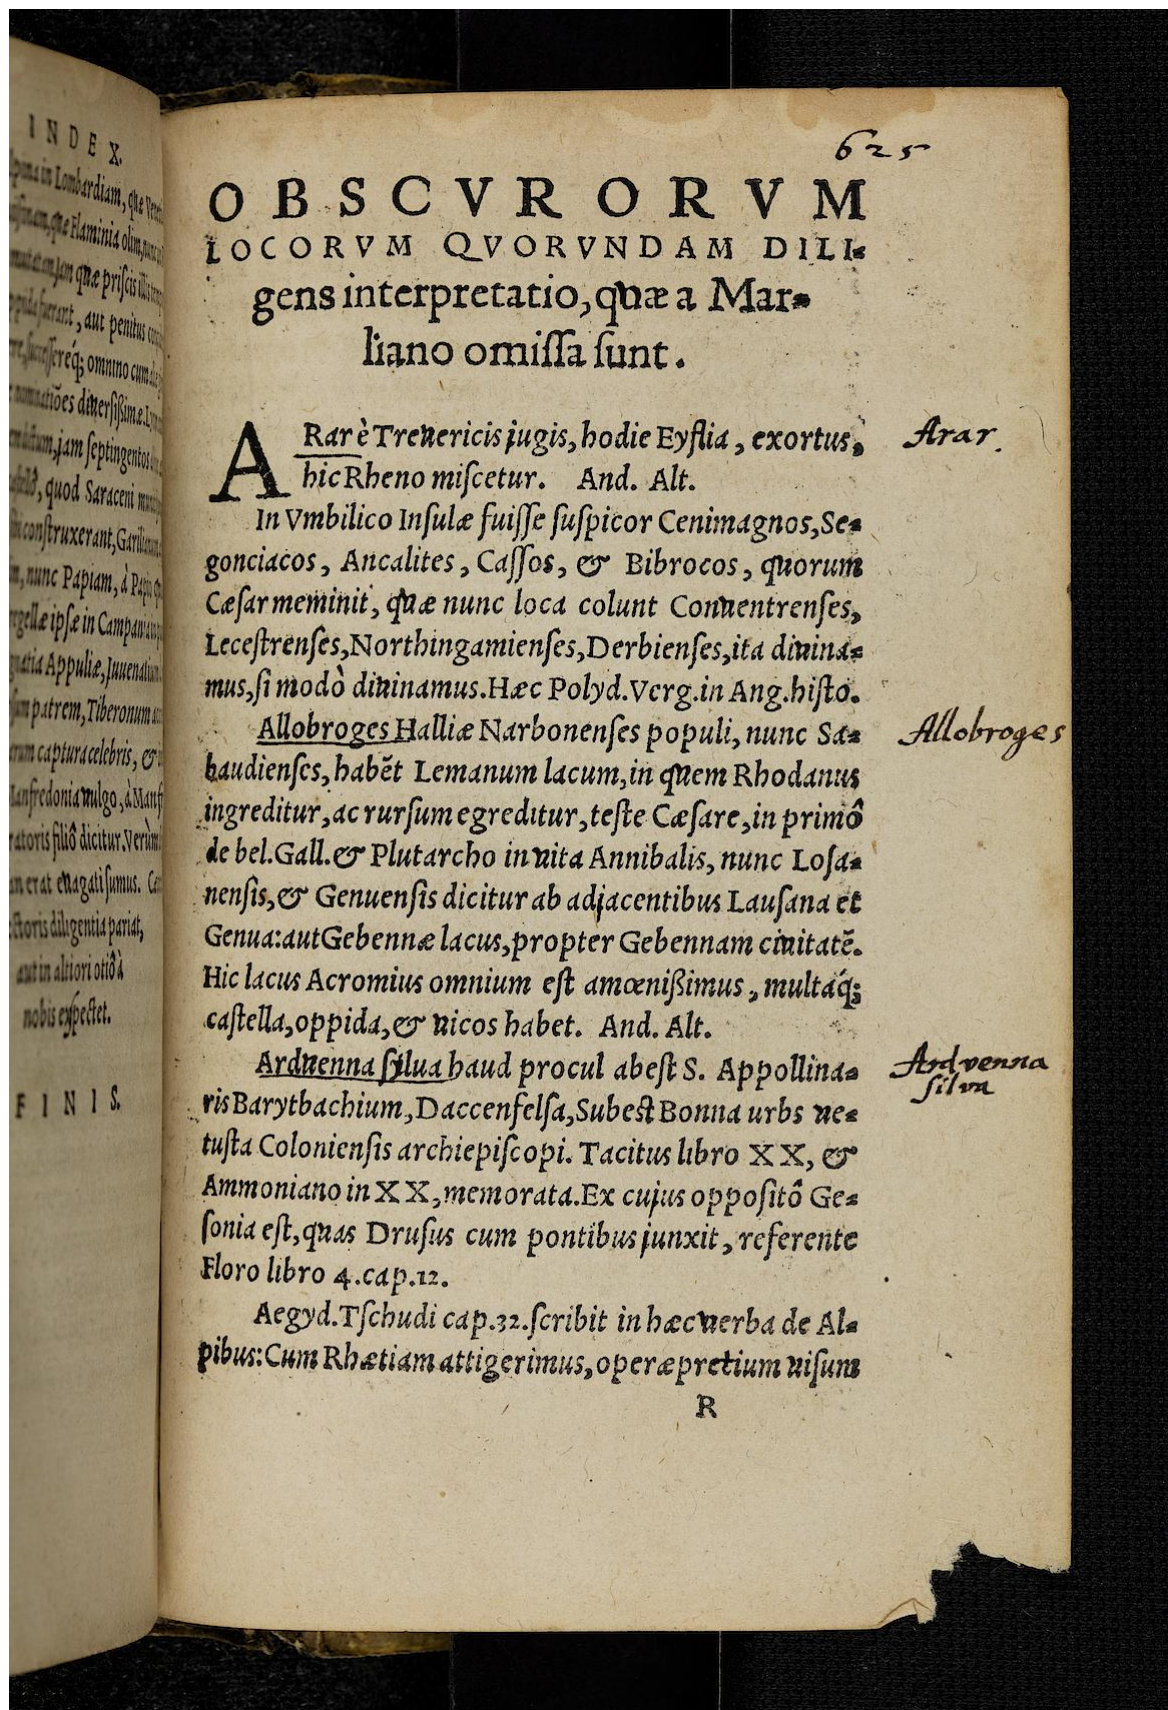 INDEX.
in Lombardiam, quæ
Flaminia olim,
quæ priscis illis
, aut penitus
omnino cum
diversißimæ.
jam septingentos
, quod Saraceni
construxerant,
nunc Papiam, à
ipsæ in
Appuliæ,
patrem, Tiberonum
captura celebris, &
vulgo, à
filiô dicitur.
erat evagati sumus.
diligentia pariat,
aut in altiori otiô à
nobis expectet.
FINIS.
625
OBSCVRORVM
LOCORVM QVORVNDAM DILI-
gens interpretatio, quæ a Mar-
liano omissa sunt.
ARar è Trevericis jugis, hodie Eyflia, exortus,
hic Rheno miscetur. And. Alt.
Arar.
In Vmbilico Insulæ fuisse suspicor Cenimagnos, Se-
gonciacos, Ancalites, Cassos, & Bibrocos, quorum
Cæsar meminit, quæ nunc loca colunt Conventrenses,
Lecestrenses, Northingamienses, Derbienses, ita divina-
mus, si modò divinamus. Hæc Polyd. Verg. in Ang. histo.
Allobroges Halliæ Narbonenses populi, nunc Sa-
Allobroges
baudienses, habēt Lemanum lacum, in quem Rhodanus
ingreditur, ac rursum egreditur, teste Cæsare, in primô
de bel. Gall. & Plutarcho in vita Annibalis, nunc Losa-
nensis, & Genuensis dicitur ab adjacentibus Lausana et
Genua: aut Gebennæ lacus, propter Gebennam civitatē.
Hic lacus Acromius omnium est amœnißimus, multáq;
castella, oppida, & vicos habet. And. Alt.
Ardvenna sylva haud procul abest S. Appollina-
Ardvenna
silva
ris Barytbachium, Daccenfelsa, Subest Bonna urbs ve-
tusta Coloniensis archiepiscopi. Tacitus libro XX, &
Ammoniano in XX, memorata. Ex cujus oppositô Ge-
sonia est, quas Drusus cum pontibus junxit, referente
Floro libro 4. cap. 12.
Aegyd. Tschudi cap. 32. scribit in hæc verba de Al-
pibus: Cum Rhætiam attigerimus, operæpretium visum
R